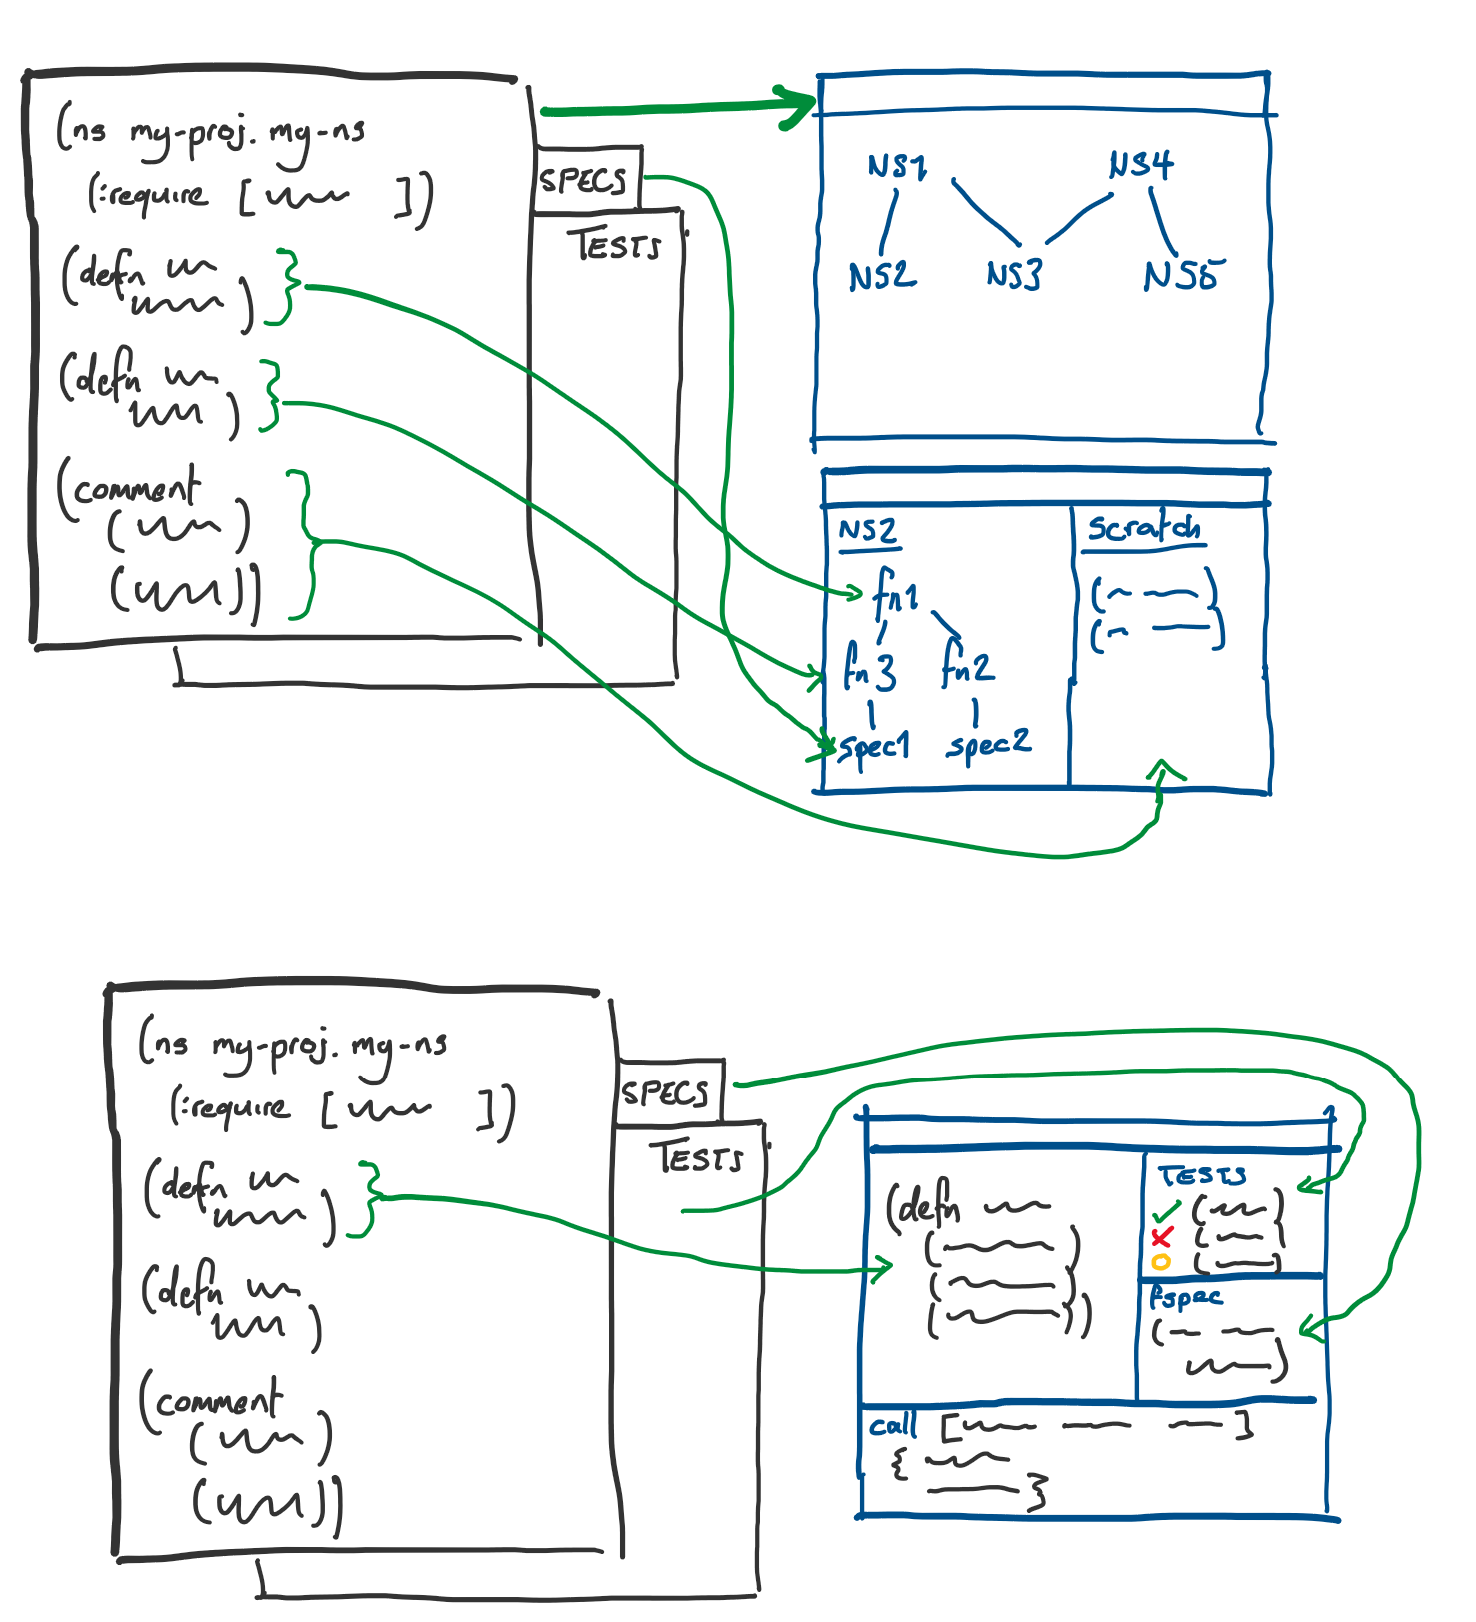 (ns my-proj.my-ns
(:require [ ])
(defn
)
(defn
)
(comment
( )
( ))
SPECS
TESTS
NS1 NS4
NS2 NS3 NS5
NS2
fn1
fn3 fn2
spec1 spec2
Scratch
( )
( )
(ns my-proj.my-ns
(:require [ ])
(defn
)
(defn
)
(comment
( )
( ))
SPECS
TESTS
(defn
( )
( )
( ))
TESTS
( )
( )
( )
fspec
(
)
call [ ]
{
}